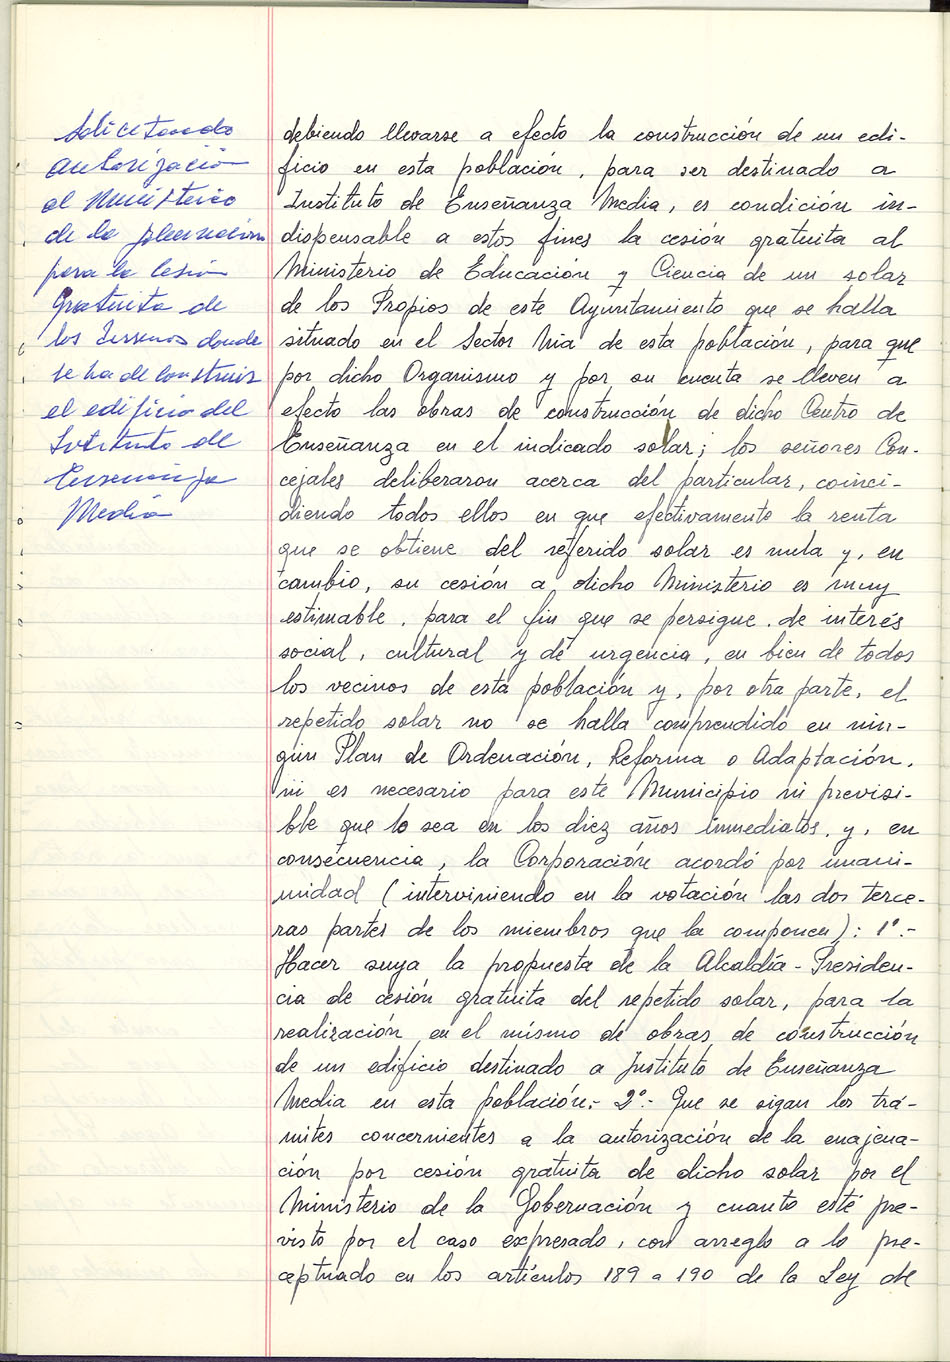 Solicitando
autorización
al Ministerio
de la
para la cesión
gratuita de
los terrenos donde
se ha de construir
el edificio del
Instituto de
Enseñanza
Media
debiendo llevarse a efecto la construcción de un edi-
ficio en esta población, para ser destinado a
Instituto de Enseñanza Media, es condición in-
dispensable a estos fines la cesión gratuita al
Ministerio de Educación y Ciencia de un solar
de los Propios de este Ayuntamiento que se halla
situado en el Sector de esta población, para que
por dicho Organismo y por su cuenta se lleven a
efecto las obras de construcción de dicho Centro de
Enseñanza en el indicado solar; los señores Con-
cejales deliberaron acerca del particular, coinci-
diendo todos ellos en que efectivamente la renta
que se obtiene del referido solar es nula y, en
cambio, su cesión a dicho Ministerio es muy
estimable, para el fin que se persigue, de interés
social, cultural y de urgencia, en bien de todos
los vecinos de esta población y, por otra parte, el
repetido solar no se halla comprendido en nin-
gún Plan de Ordenación, Reforma o Adaptación,
ni es necesario para este Municipio ni previsi-
ble que lo sea en los diez años inmediatos, y, en
consecuencia, la Corporación acordó por unani-
midad (interviniendo en la votación las dos terce-
ras partes de los miembros que la componen): 1º.-
Hacer suya la propuesta de la Alcaldía-Presiden-
cia de cesión gratuita del repetido solar, para la
realización en el mismo de obras de construcción
de un edificio destinado a Instituto de Enseñanza
Media en esta población.- 2º.- Que se sigan los trá-
mites concernientes a la autorización de la enajena-
ción por cesión gratuita de dicho solar por el
Ministerio de la Gobernación y cuanto esté pre-
visto por el caso expresado, con arreglo a lo pre-
ceptuado en los artículos 189 a 190 de la Ley de